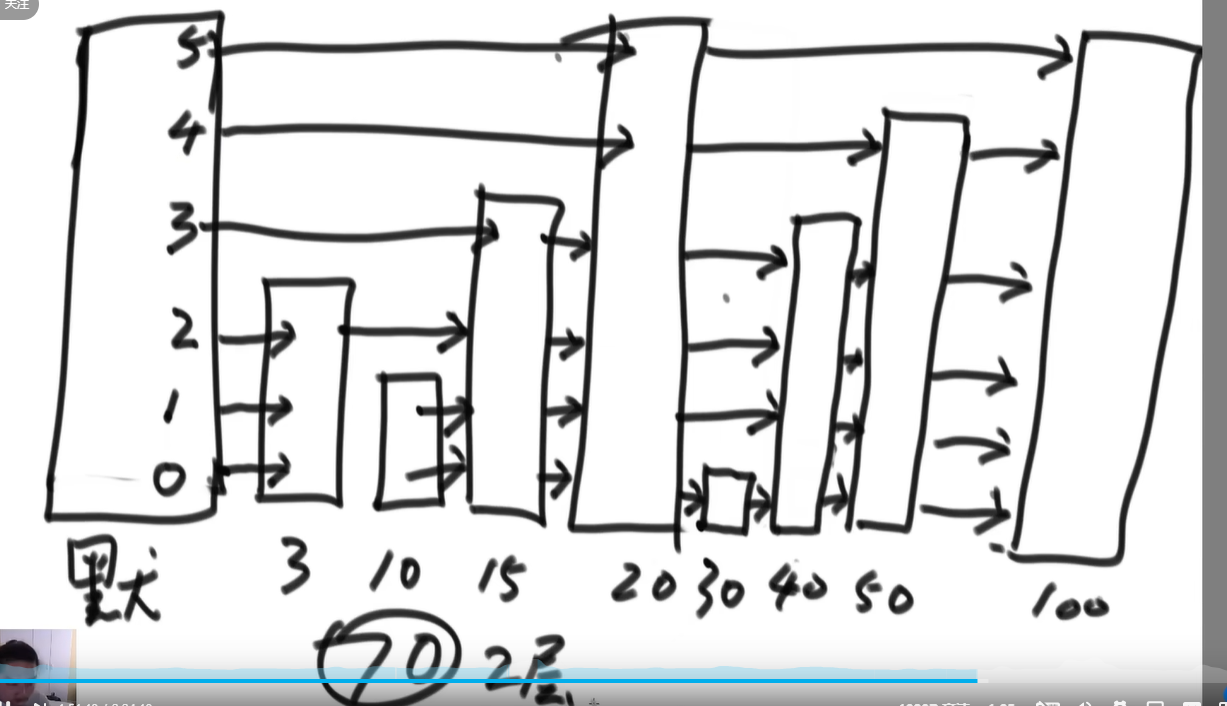 关注
5
4
3
2
1
0
默犬 3 10 15 20 30 40 50 100
70 2层